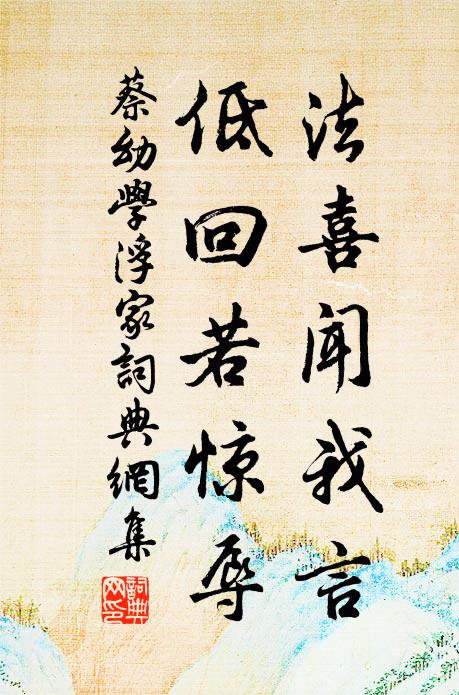 法喜闻我言
低回若惊辱
蔡幼學浮家詞典網集
詞典